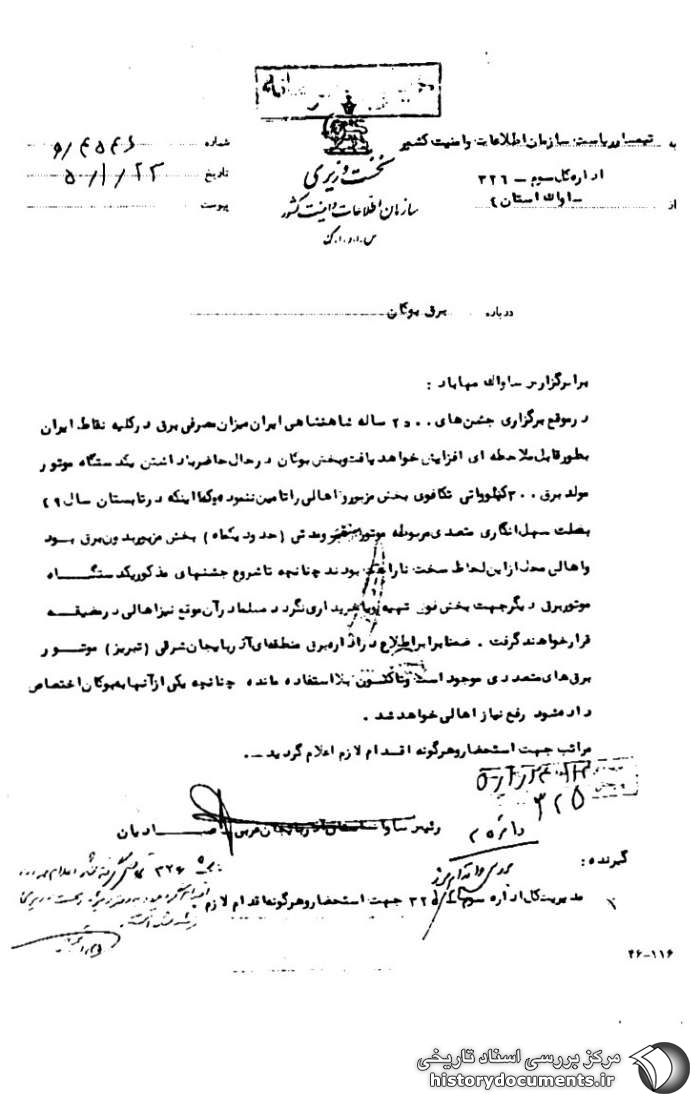 به تیمسار ریاست سازمان اطلاعات و امنیت کشور
اداره کل سوم - ۳۲۶
از ساواک استان ۴
نخست وزیری
سازمان اطلاعات و امنیت کشور
س.ا.و.ا.ک
شماره
تاریخ ۵۰/۱/۲۲
پیوست
درباره برق بوکان
برابر گزارش ساواک مهاباد :
در موقع برگزاری جشن های ۲۵۰۰ ساله شاهنشاهی ایران میزان مصرفی برق در کلیه نقاط ایران
بطور قابل ملاحظه ای افزایش خواهد یافت و بخش بوکان در حال حاضر با داشتن یک دستگاه موتور
مولد برق ۳۰۰ کیلوواتی تکافوی بخش مزبور و اهالی را تامین ننموده و کما اینکه در تابستان سال ۴۹
بعلت سهل انگاری متصدی مربوطه موتور و مدتی (حدود یکماه) بخش مزبور بدون برق بود
و اهالی محل از این لحاظ سخت ناراحت بودند چنانچه تا شروع جشنهای مذکور یک دستگاه
موتور برق دیگر جهت بخش فوق تهیه و یا خریداری نگردد مسلما در آن موقع نیز اهالی در مضیقه
قرار خواهند گرفت . ضمنا برابر اطلاع در اداره برق منطقه ای آذربایجان شرقی (تبریز) موتور
برق های متعددی موجود است و تاکنون بلا استفاده مانده چنانچه یکی از آنها به بوکان اختصاص
داده شود رفع نیاز اهالی خواهد شد .
مراتب جهت استحضار و هرگونه اقدام لازم اعلام گردید .
رئیس ساواک استان آذربایجان غربی
۳۲۵
دایره
گیرنده :
۱ مدیریت کل اداره سوم ۳۲۵ جهت استحضار و هرگونه اقدام لازم
۴۶-۱۱۶
مرکز بررسی اسناد تاریخی
historydocuments.ir